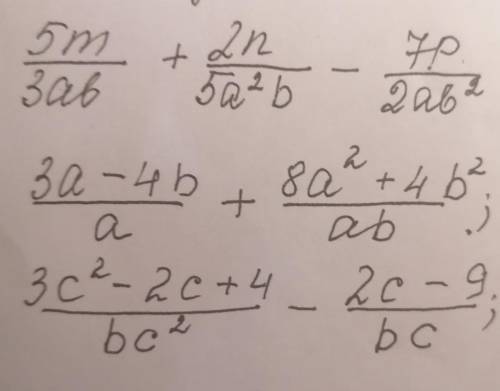 5m/3ab + 2n/5a²b − 7p/2ab²
3a − 4b/a + 8a² + 4b²/ab;
3c² − 2c + 4/bc² − 2c − 9/bc;